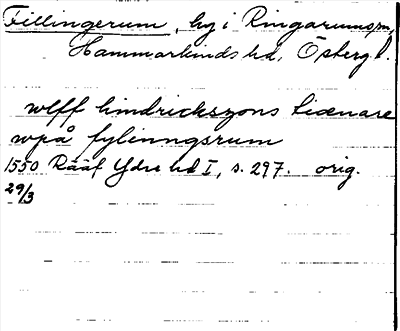 Fillingerum, by i Ringarumsn,
Hammarkinds hd, Östergl.
wlff hindrickszons tiænare
wpå fylinngsrum
1550 Rääf Ydre hd I, s. 297. orig.
29/3